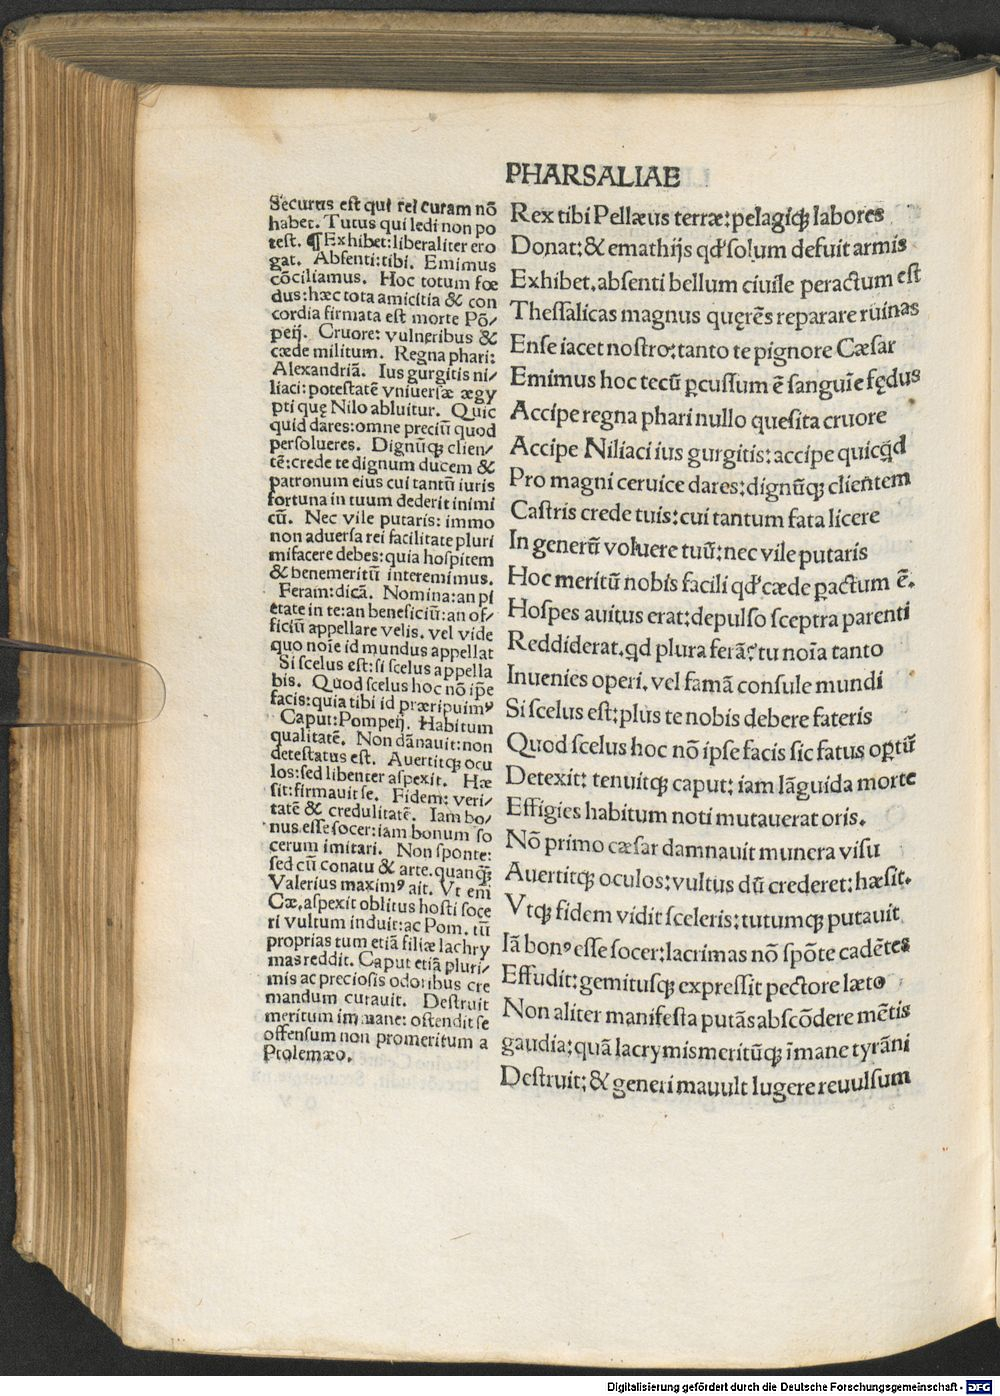 PHARSALIAE
Securus est qui rei curam nō
habet. Tutus qui ledi non po
test. ¶ Exhibet:liberaliter ero
gat. Absenti:tibi. Emimus
cōciliamus. Hoc totum fœ
dus:hæc tota amicitia & con
cordia firmata est morte Pō/
peij. Cruore: vulneribus &
cæde militum. Regna phari:
Alexandriā. Ius gurgitis ni/
liaci:potestatē vniuersæ ægy
pti quę Nilo abluitur. Quic
quid dares:omne preciū quod
persolueres. Dignūqꝫ clien/
tē:crede te dignum ducem &
patronum eius cui tantū iuris
fortuna in tuum dederit inimi
cū. Nec vile putaris: immo
non aduersa rei facilitate pluri
mifacere debes:quia hospitem
& benemeritū interemimus.
Feram:dicā. Nomina:an pi
etate in te:an beneficiū:an of/
ficiū appellare velis. vel vide
quo noīe id mundus appellat
Si scelus est:si scelus appella
bis. Quod scelus hoc nō ip̄e
facis:quia tibi id præripuimꝰ
Caput:Pompeij. Habitum
qualitatē. Non dānauit:non
detestatus est. Auertitqꝫ ocu
los:sed libenter aspexit. Hæ
sit:firmauit se. Fidem: veri/
tatē & credulitatē. Iam bo/
nus esse socer:iam bonum so
cerum imitari. Non sponte:
sed cū conatu & arte.quanqꝫ̄
Valerius maximꝰ ait. Vt em̄
Cæ.aspexit oblitus hosti soce
ri vultum induit:ac Pom. tū
proprias tum etiā filiæ lachry
mas reddit. Caput etiā pluri/
mis ac preciosis odoribus cre
mandum curauit. Destruit
meritum immane: ostendit se
offensum non promeritum a
Ptolemæo.
Rex tibi Pellæus terræ:pelagiqꝫ labores
Donat:& emathijs qđ solum defuit armis
Exhibet.absenti bellum ciuile peractum est
Thessalicas magnus quęrēs reparare ruinas
Ense iacet nostro:tanto te pignore Cæsar
Emimus hoc tecū ꝑcussum ē sanguīe fędus
Accipe regna phari nullo quesita cruore
Accipe Niliaci ius gurgitis:accipe quicq̄d
Pro magni ceruice dares:dignūqꝫ clientem
Castris crede tuis:cui tantum fata licere
In generū voluere tuū:nec vile putaris
Hoc meritū nobis facili qđ cæde ꝑactum ē.
Hospes auitus erat:depulso sceptra parenti
Reddiderat.qd plura ferā? tu noīa tanto
Inuenies operi. vel famā consule mundi
Si scelus est:plus te nobis debere fateris
Quod scelus hoc nō ipse facis sic fatus oꝑtū
Detexit: tenuitqꝫ caput: iam lāguida morte
Effigies habitum noti mutauerat oris.
Nō primo cæsar damnauit munera visu
Auertitqꝫ oculos:vultus dū crederet:hæsit.
Vtqꝫ fidem vidit sceleris:tutumqꝫ putauit
Iā bonꝰ esse socer:lacrimas nō spōte cadētes
Effudit:gemitusqꝫ expressit pectore læto
Non aliter manifesta putās abscōdere mētis
gaudia:quā lacrymis meritūqꝫ īmane tyrāni
Destruit:& generi mauult lugere reuulsum
Digitalisierung gefördert durch die Deutsche Forschungsgemeinschaft - DFG